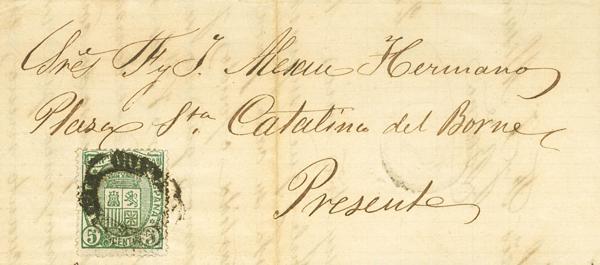 Sres F y J. Alexau Hermano
Plaza Sta Catalina del Borne
Presente
5 CENTs 5